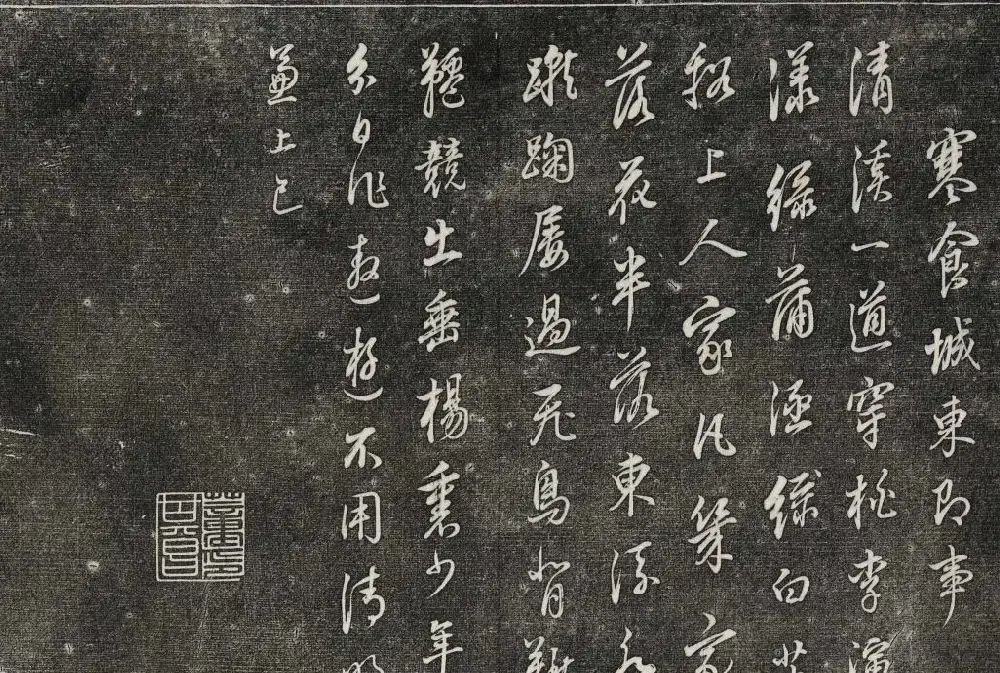 寒食城東即事
清溪一道穿桃李演
漾綠蒲涵綠白
谿上人家凡幾家
落花半落東流水
蹴踘屢過飛鳥背鞦
韆競出垂楊裏少年
分日作遨遊不用清明
兼上已